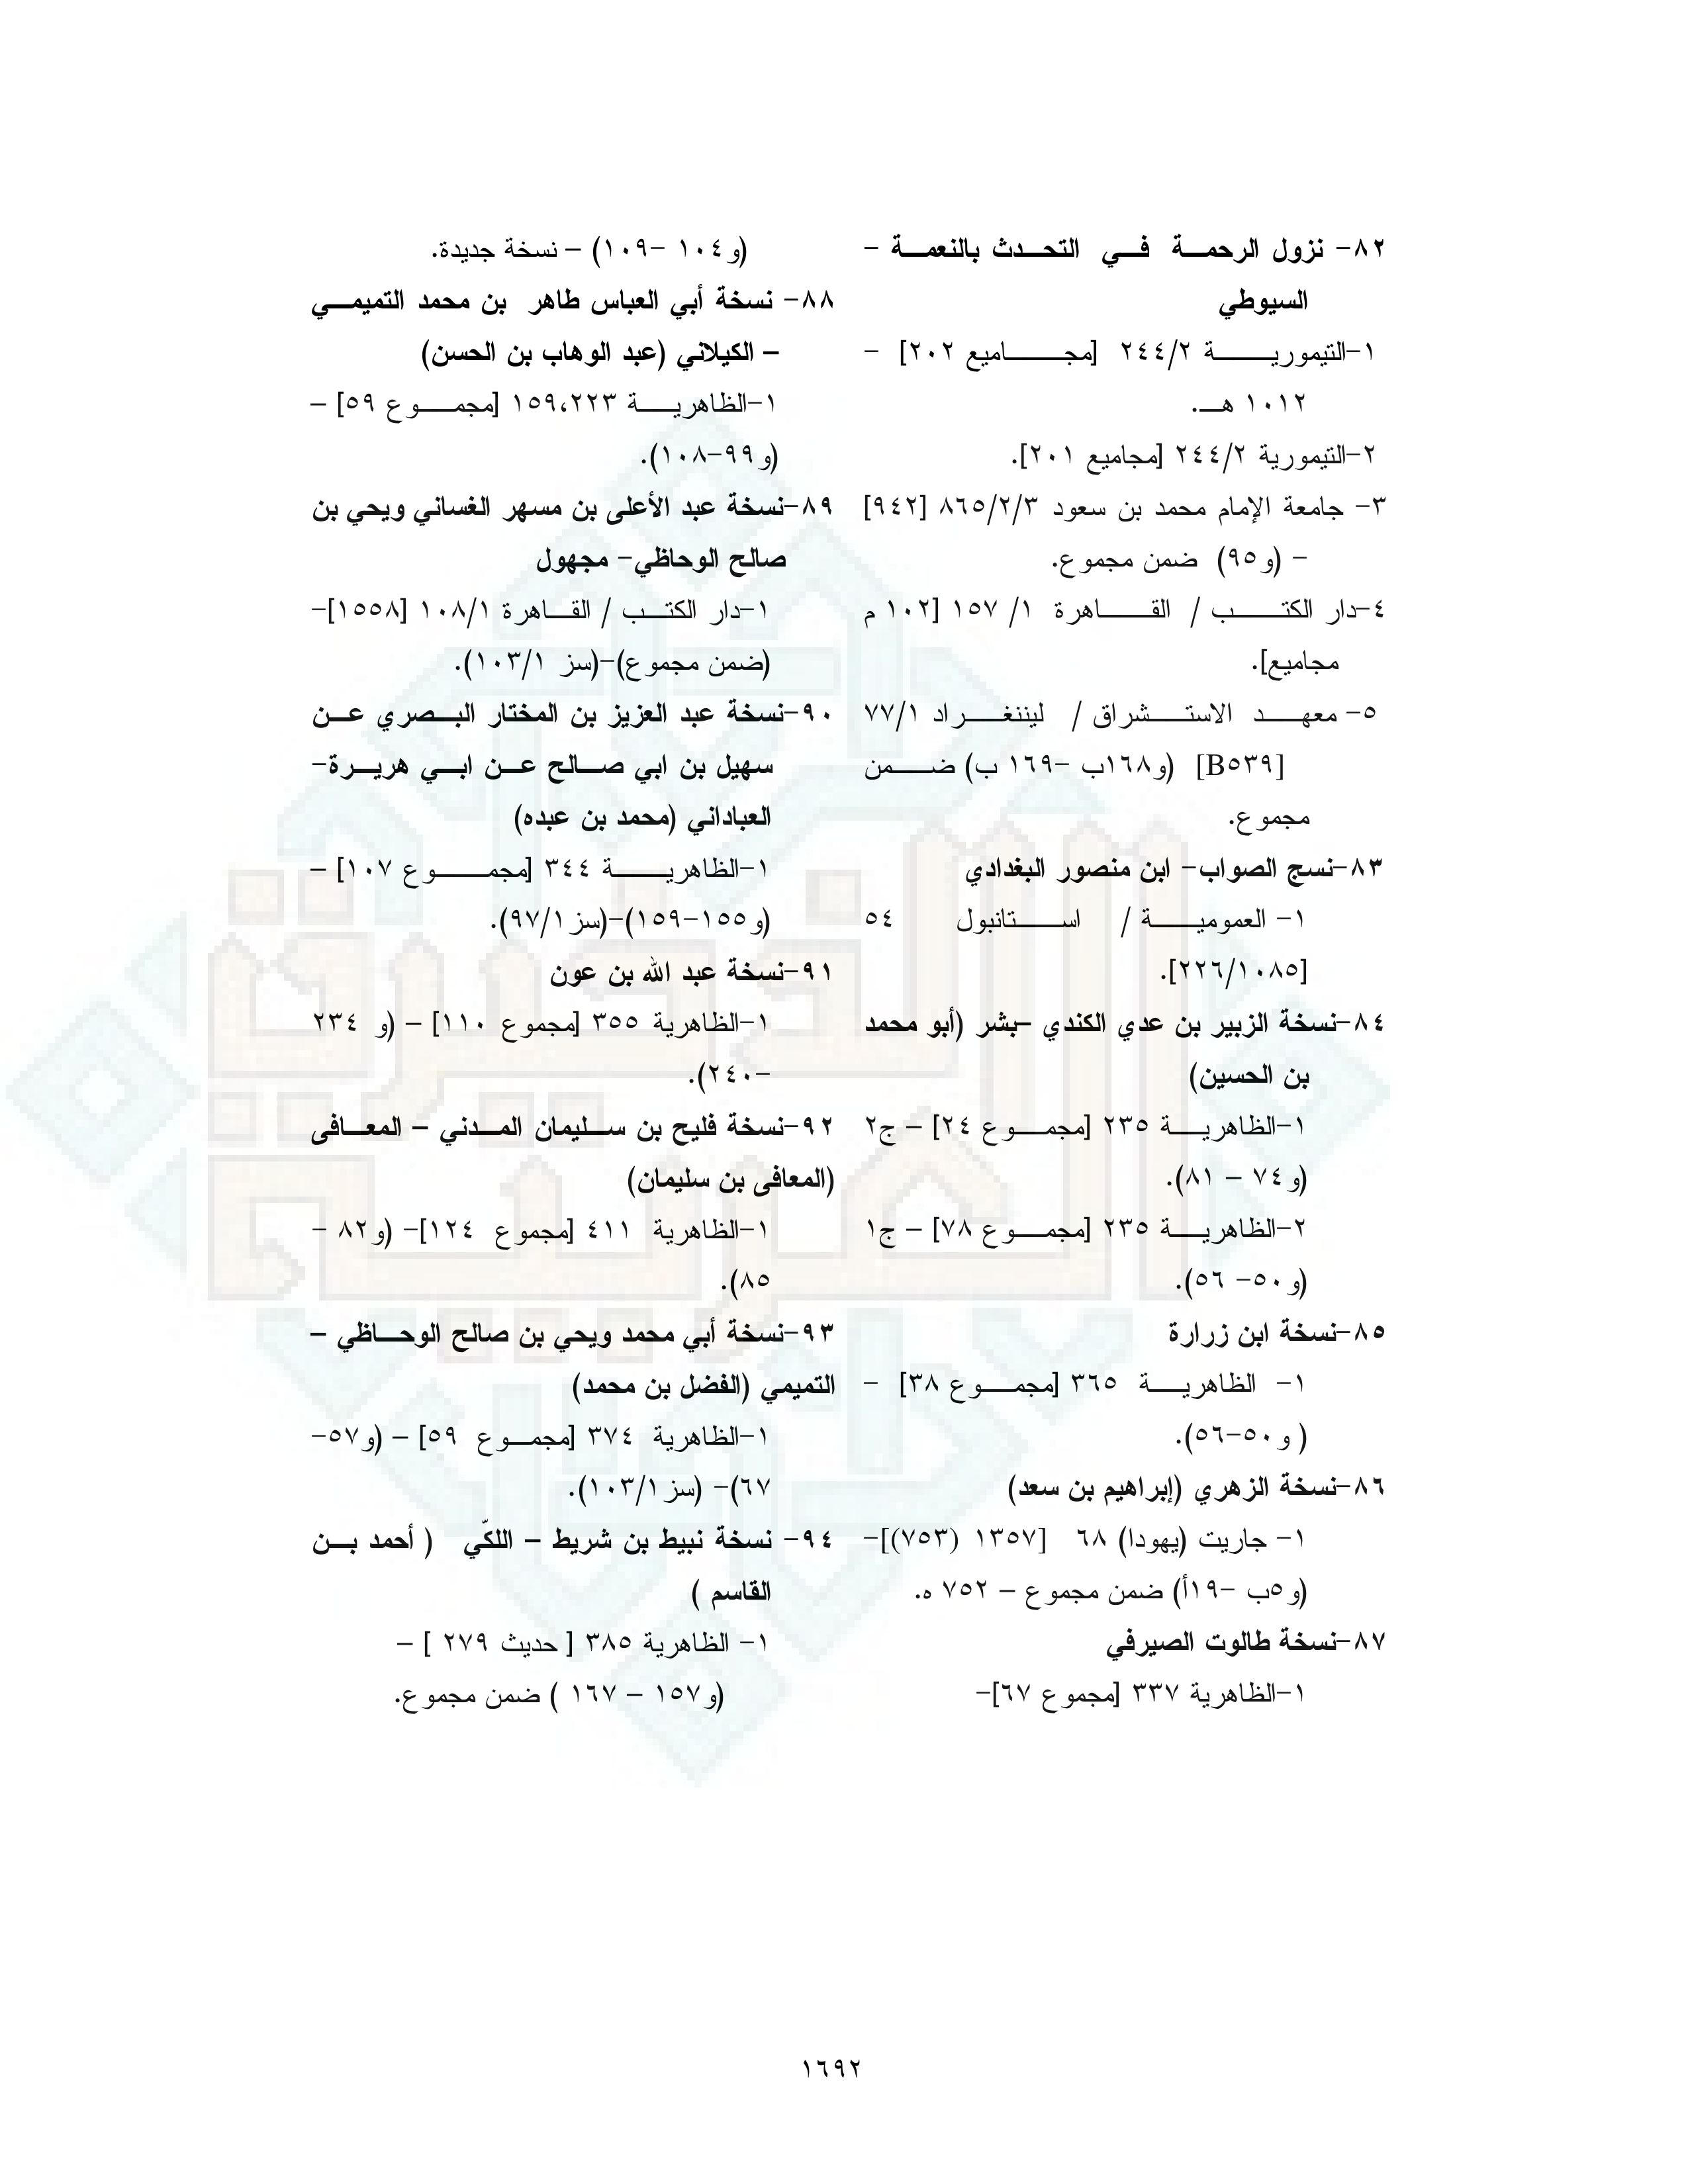 ٨٢- نزول الرحمة في التحدث بالنعمة -
السيوطي
١-التيمورية ٢٤٤/٢ [مجاميع ٢٠٢] -
١٠١٢ هـ.
٢-التيمورية ٢٤٤/٢ [مجاميع ٢٠١].
٣- جامعة الإمام محمد بن سعود ٨٦٥/٢/٣ [٩٤٢]
- (و٩٥) ضمن مجموع.
٤-دار الكتب / القاهرة ١/ ١٥٧ [١٠٢ م
مجاميع].
٥- معهد الاستشراق / ليننغراد ٧٧/١
[B٥٣٩] (و١٦٨ب -١٦٩ ب) ضمن
مجموع.
٨٣-نسج الصواب- ابن منصور البغدادي
١- العمومية / استانبول ٥٤
[٢٢٦/١٠٨٥].
٨٤-نسخة الزبير بن عدي الكندي –بشر (أبو محمد
بن الحسين)
١-الظاهرية ٢٣٥ [مجموع ٢٤] – ج٢
(و٧٤ – ٨١).
٢-الظاهرية ٢٣٥ [مجموع ٧٨] – ج١
(و٥٠- ٥٦).
٨٥-نسخة ابن زرارة
١- الظاهرية ٣٦٥ [مجموع ٣٨] -
( و٥٠-٥٦).
٨٦-نسخة الزهري (إبراهيم بن سعد)
١- جاريت (يهودا) ٦٨ [١٣٥٧ (٧٥٣)]-
(و٥ب -١٩أ) ضمن مجموع – ٧٥٢ ه.
٨٧-نسخة طالوت الصيرفي
١-الظاهرية ٣٣٧ [مجموع ٦٧]-
(و١٠٤ -١٠٩) – نسخة جديدة.
٨٨- نسخة أبي العباس طاهر بن محمد التميمي
– الكيلاني (عبد الوهاب بن الحسن)
١-الظاهرية ١٥٩،٢٢٣ [مجموع ٥٩] –
(و٩٩-١٠٨).
٨٩-نسخة عبد الأعلى بن مسهر الغساني ويحي بن
صالح الوحاظي- مجهول
١-دار الكتب / القاهرة ١٠٨/١ [١٥٥٨]-
(ضمن مجموع)-(سز ١٠٣/١).
٩٠-نسخة عبد العزيز بن المختار البصري عن
سهيل بن ابي صالح عن ابي هريرة-
العباداني (محمد بن عبده)
١-الظاهرية ٣٤٤ [مجموع ١٠٧] –
(و١٥٥-١٥٩)-(سز٩٧/١).
٩١-نسخة عبد الله بن عون
١-الظاهرية ٣٥٥ [مجموع ١١٠] – (و ٢٣٤
-٢٤٠).
٩٢-نسخة فليح بن سليمان المدني – المعافى
(المعافى بن سليمان)
١-الظاهرية ٤١١ [مجموع ١٢٤]- (و٨٢ -
٨٥).
٩٣-نسخة أبي محمد ويحي بن صالح الوحاظي –
التميمي (الفضل بن محمد)
١-الظاهرية ٣٧٤ [مجموع ٥٩] – (و٥٧-
٦٧)- (سز١٠٣/١).
٩٤- نسخة نبيط بن شريط – اللكّي ( أحمد بن
القاسم )
١- الظاهرية ٣٨٥ [ حديث ٢٧٩ ] –
(و١٥٧ – ١٦٧ ) ضمن مجموع.
١٦٩٢